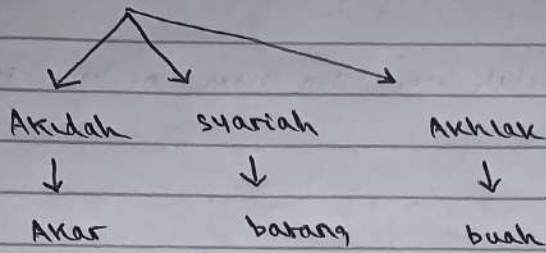 Akidah syariah Akhlak
Akar batang buah